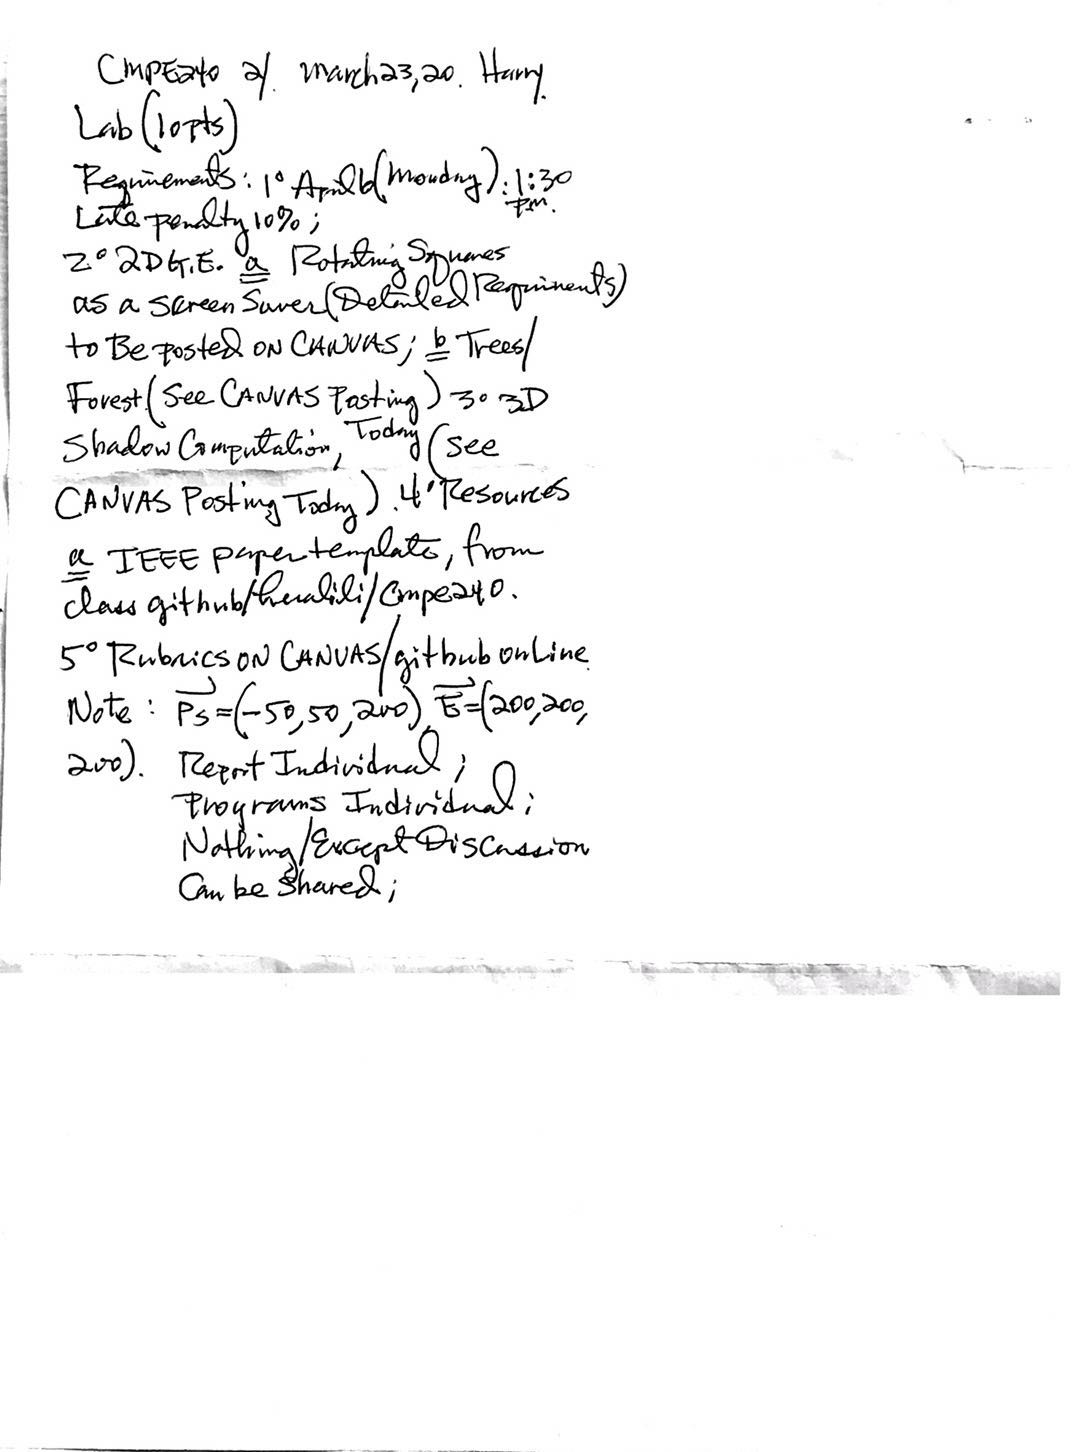 CMPE240 2/ March 23, 20. Harry
Lab (10pts)
Requirements: 1° April 6 (Monday): 1:30
PM.
Late penalty 10%;
2° 2D G.E. a Rotating Squares
as a screen Saver (Detailed Requirements)
to Be posted ON CANVAS; b Trees/
Forest (See CANVAS Posting) 3° 3D
Shadow Computation, Today (see
CANVAS Posting Today). 4° Resources
a IEEE paper template, from
class github/hualili/Cmpe240.
5° Rubrics ON CANVAS/github onLine
Note: Ps=(-50,50,200), E=(200,200,
200). Report Individual;
Programs Individual;
Nothing/Except Discussion
Can be Shared;